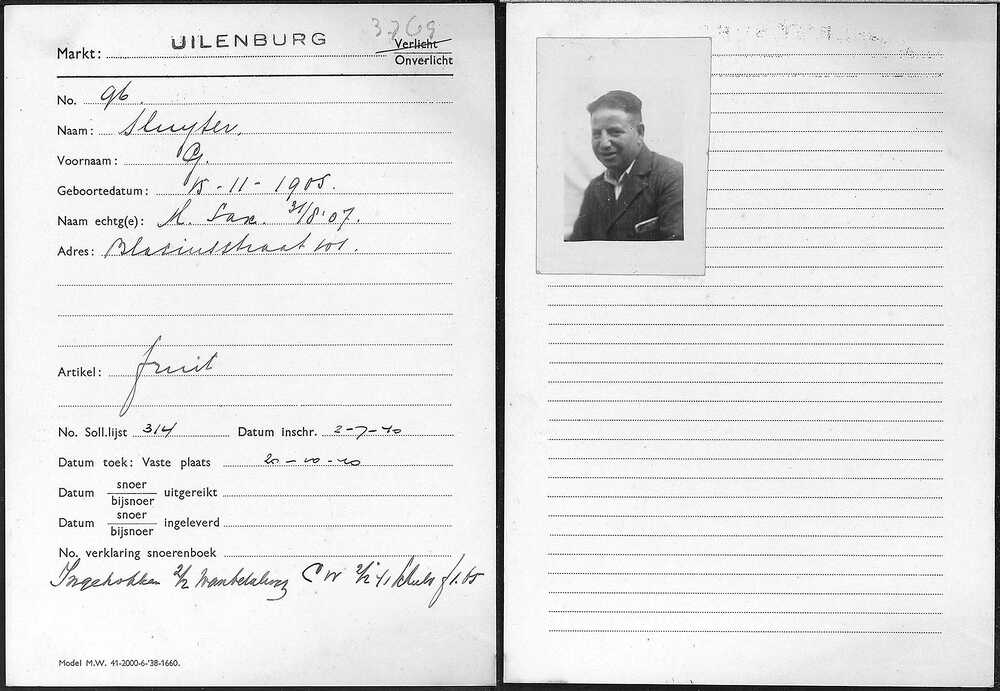 3769
Markt: UILENBURG Verlicht
Onverlicht
No. 96.
Naam: Sluyter,
Voornaam: G.
Geboortedatum: 15-11-1905.
Naam echtg(e): M. Sax. 31/8'07.
Adres: Blasiusstraat 101.
Artikel: fruit
No. Soll.lijst 314 Datum inschr. 2-7-40
Datum toek: Vaste plaats 20-10-40
Datum snoer
bijsnoer uitgereikt
Datum snoer
bijsnoer ingeleverd
No. verklaring snoerenboek
Ingetrokken 2/2 wanbetaling C W 2/2 41 schuld f
Model M.W. 41-2000-6-'38-1660.